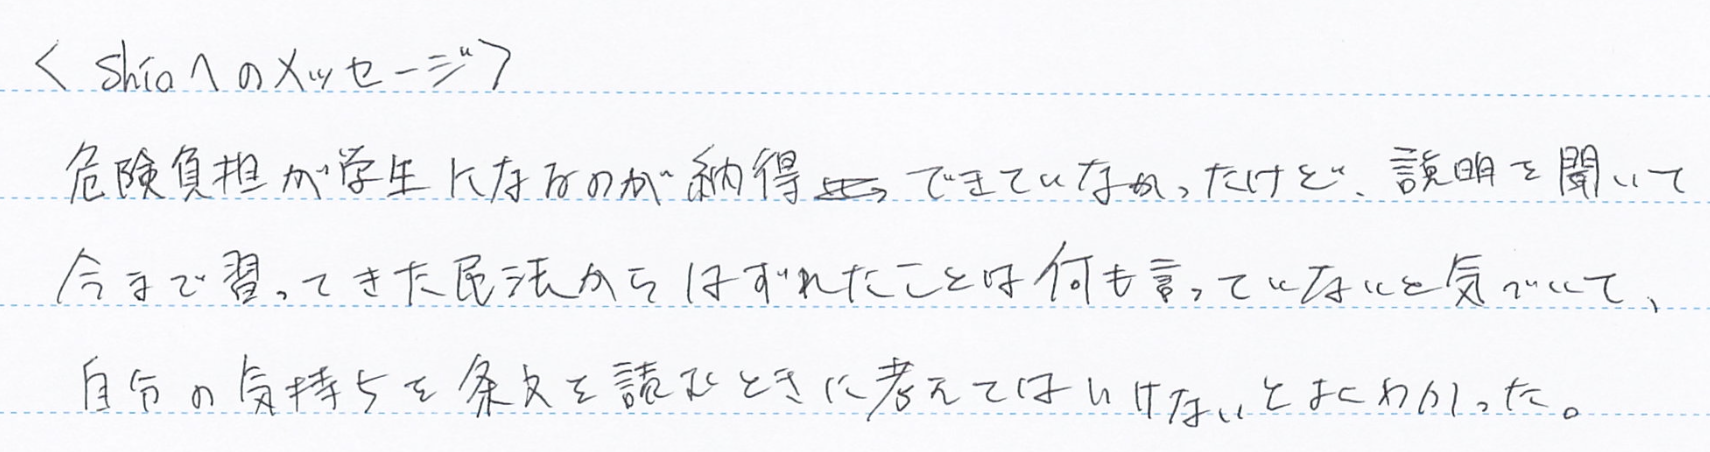 ＜Shioへのメッセージ＞
危険負担が学生になるのが納得できていなかったけど、説明を聞いて
今まで習ってきた民法からはずれたことは何も言っていないと気づいて、
自分の気持ちを条文を読むときに考えてはいけないとよくわかった。